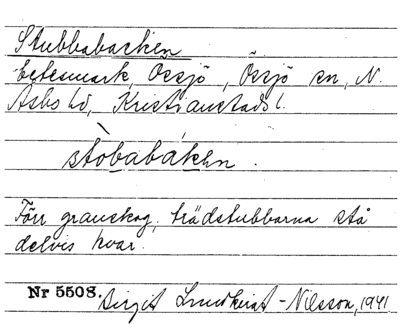 Stubbabacken
betesmark, Össjö, Össjö sn, N.
Åsbo hd, Kristianstads l.
stòbabáken.
Förr granskog, trädstubbarna stå
delvis kvar.
Nr 5508. Birgit Lundkvist-Nilsson, 1941